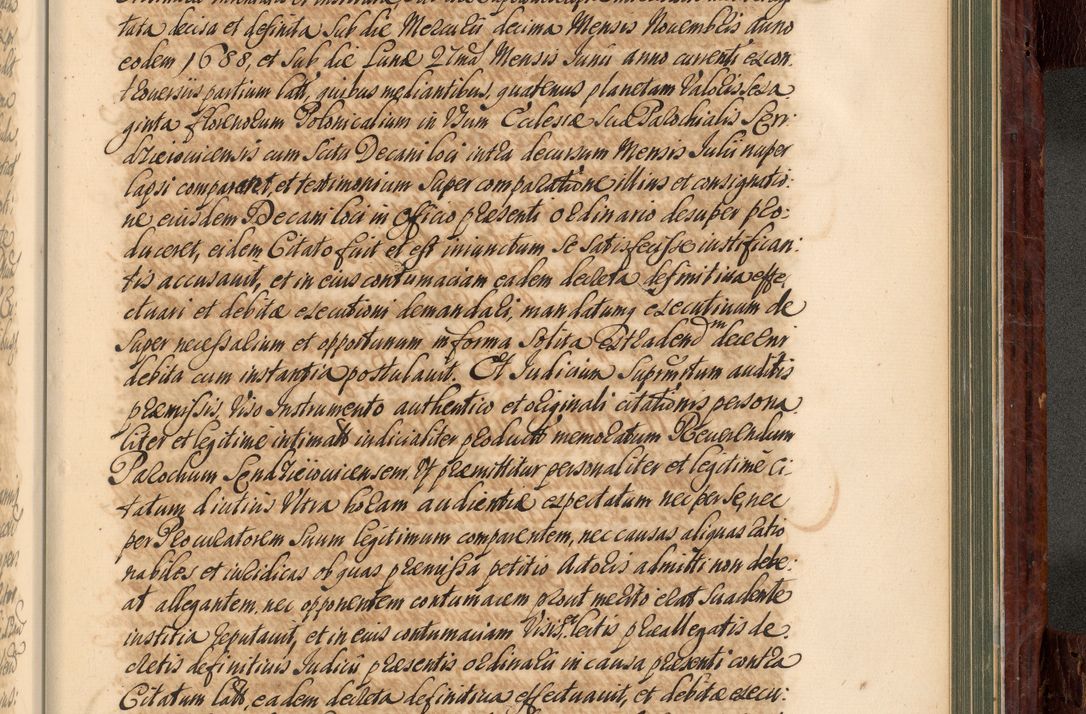 tata decisa et definita sub die Mercurii decima Mensis Novembris anno
eodem 1688, et sub die Lunæ 27ma Mensis Junii anno currenti ex con
troversiis partium latt, quibus mediantibus, quatenus planetam valoris sexa
ginta florenorum Polonicalium in Usum Ecclesiæ suæ Parochialis Sen:
dzieiovicensis cum scitu Decani loci intra decursum Mensis Julii nuper
lapsi compararet, et testimonium super comparatione illius et consignatio:
ne eiusdem Decani loci in Officio præsenti ordinario desuper pro:
duceret, eidem Citato fuit et est iniunctum se satisfecisse iustifican:
tis accusavit, et in eius contumaciam eadem decreta definitiva effe,
ctuari et debitæ executioni demandari, mandatumq executivum de
super necessarium et opportunum in forma solita extradend decerni
debita cum instantia postulavit. Et Judicium supmttum auditis
præmissis, viso Instrumento authentico et originali citationis persona
liter et legitime intimatt iudicialiter productt memoratum Reverendum
Parochum Sendzieiovicensem Ut præmittitur personaliter et legitime ci
tatum diutius Ultra horam audientiæ expectatum nec per se, nec
per Procuratorem suum legitimum comparentem, nec causas aliquas ratio
nabiles et iuridicas ob quas præmissa petitio Actoris admitti non debe:
at allegantem, nec opponentem contumacem prout merito erat suadente
iustitia reputavit, et in eius contumaciam Visis, lectis præallegatis de
cretis definitivis Judicii præsentis ordinarii in causa præsenti contra
Citatum latt, eadem decreta definitiva effectuavit, et debitæ execu: